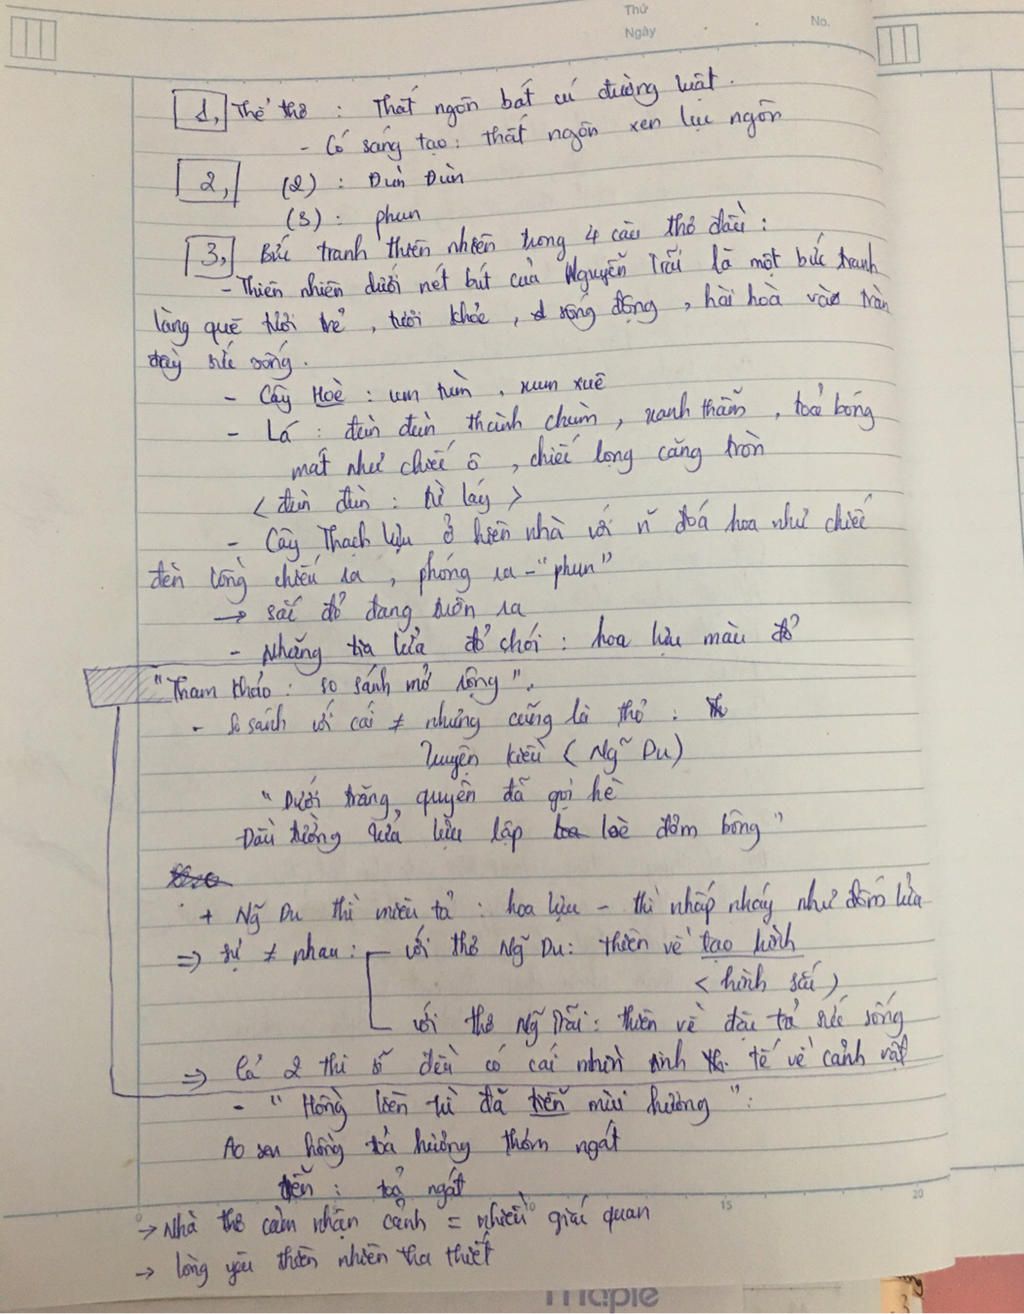 Thứ
Ngày
No.
1, Thể thơ : Thất ngôn bát cú đường luật.
- Có sáng tạo: thất ngôn xen lục ngôn
2, (2) : Đùn Đùn
(3) : phun
3, Bức tranh thiên nhiên trong 4 câu thơ đầu :
- Thiên nhiên dưới nét bút của Nguyễn Trãi là một bức tranh
làng quê tươi trẻ, tươi khỏe, sống động, hài hoà và tràn
đầy sức sống.
- Cây Hoè : um tùm, xum xuê
- Lá : đùn đùn thành chùm, xanh thẫm, toả bóng
mát như chiếc ô, chiếc lọng căng tròn
< đùn đùn : từ láy >
- Cây Thạch lựu ở hiên nhà với n~ đoá hoa như chiếc
đèn lồng chiếu ra, phóng ra - "phun"
→ sắc đỏ đang tuôn ra
- Những tia lửa đỏ chói : hoa lựu màu đỏ
"Tham khảo : so sánh mở rộng".
- So sánh với cái ≠ nhưng cũng là thơ :
Truyện kiều (Ng~ Du)
"Dưới trăng quyên đã gọi hè
Đầu tường lửa lựu lập loè đơm bông"
+ Ng~ Du thì miêu tả : hoa lựu - thì nhấp nháy như đốm lửa
⇒ sự ≠ nhau : - với thơ Ng~ Du: thiên về tạo hình
< hình sắc >
với thơ Ng~ Trãi: thiên về đặc tả sức sống
⇒ Cả 2 thi sĩ đều có cái nhìn tinh tế về cảnh vật
- "Hồng liên trì đã tiễn mùi hương" :
Ao sen hồng toả hương thơm ngát
tiễn : toả ngát
→ Nhà thơ cảm nhận cảnh = nhiều giác quan
→ lòng yêu thiên nhiên tha thiết
10 15 20
maple